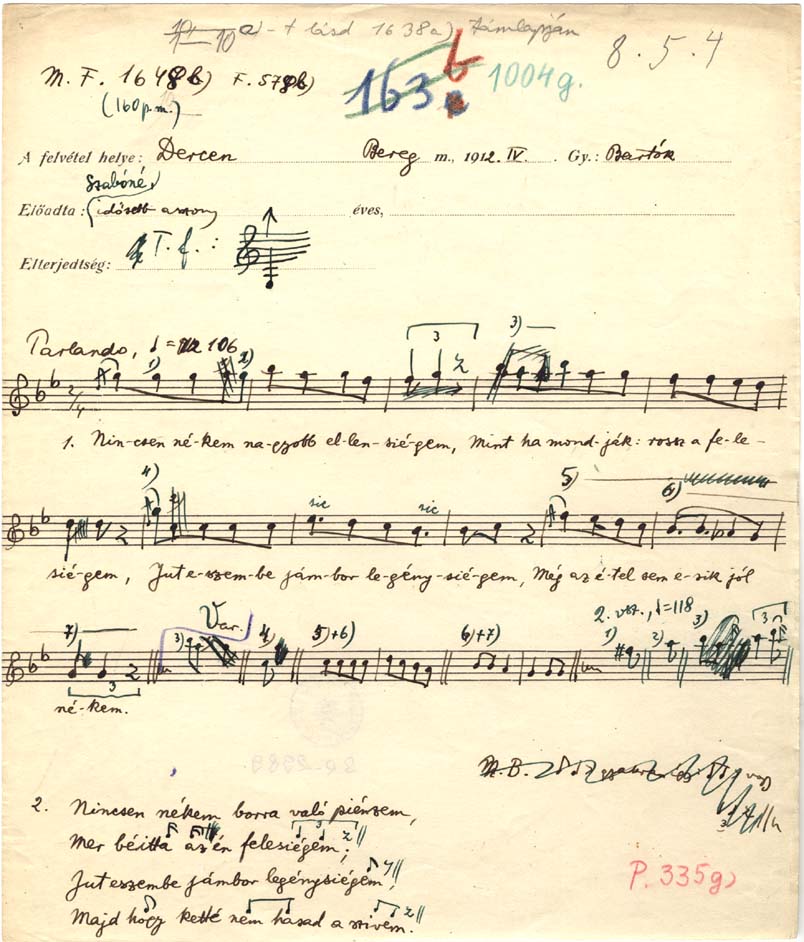 a) - + lásd 1638a) támlapján
8.5.4
M. F. 1648b) F. 578b)
163 b
1004g.
(160 p.m.)
A felvétel helye: Dercen Bereg m., 1912. IV. Gy.: Bartók
Szabóné,
Előadta: (idősebb asszony éves,
T. f. :
Elterjedtség:
Parlando, = 106
3
3)
1) 2)
2/4
1. Nin-csen né-kem na-gyobb el-len-sié-gem, Mint ha mond-ják: rossz a fe-le-
4) sic sic 5) 6)
sié-gem, Jut e-szem-be jám-bor le-gény-sié-gem, Még az é-tel sem e-sik jól
Var. 2. vsz., =118
7) 3) 4) 5)+6) 6)+7) 1) 2) 3) 3
3
né-kem.
N.B.
2. Nincsen nékem borra való piénzem,
Mer béitta az én feleségem;
Jut eszembe jámbor legénysiégem,
Majd hogy ketté nem hasad a szivem.
P. 335g)